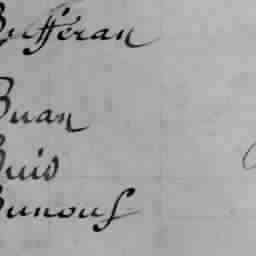 Bufferan
Buan
Buis
Bunous